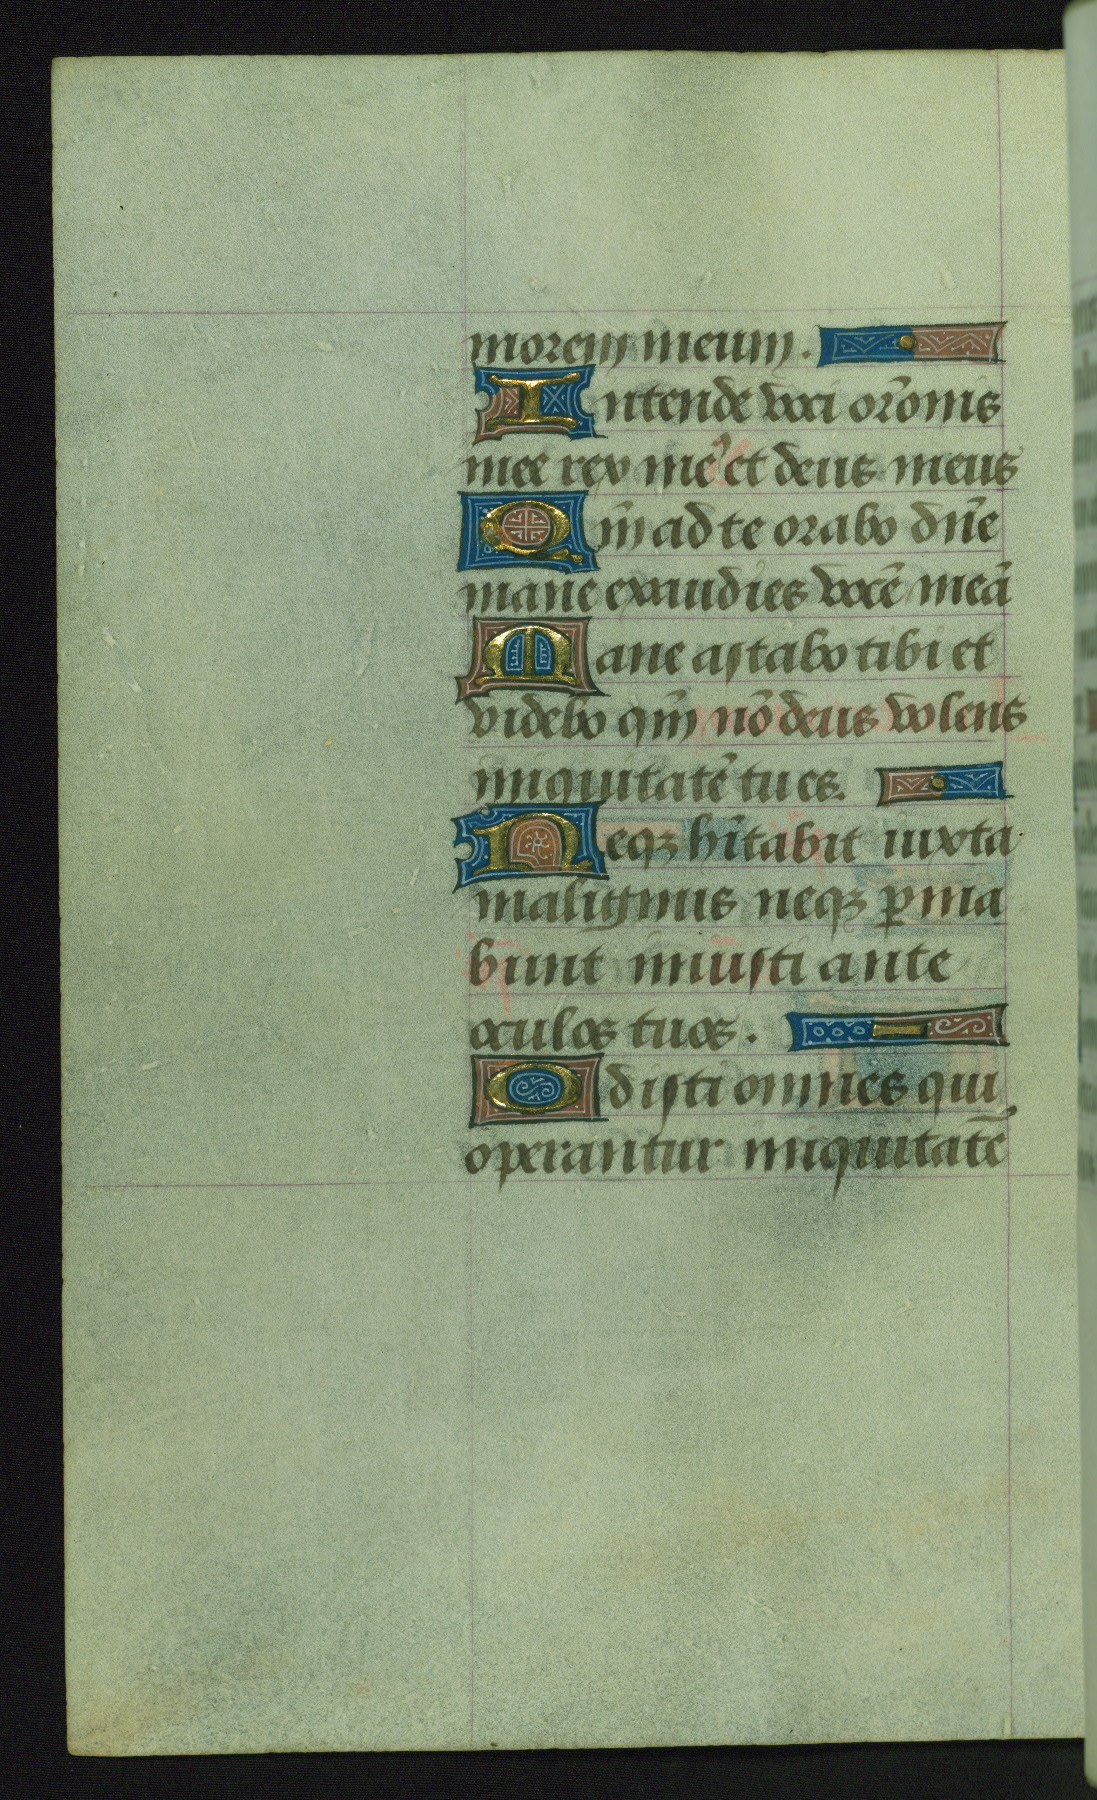 morem meum.
Intende voci or̃onis
mee rex me᷒ et deus meus
Qm̃ ad te orabo dñe
mane exaudies vocẽ meã
Mane astabo tibi et
videbo qm̃ nõ deus volens
iniquitatẽ tu es.
Neqꝫ hĩtabit iuxta
malignus neqꝫ ꝑma
bunt iniusti ante
oculos tuos.
Odisti omnes qui
operantur iniquitatẽ